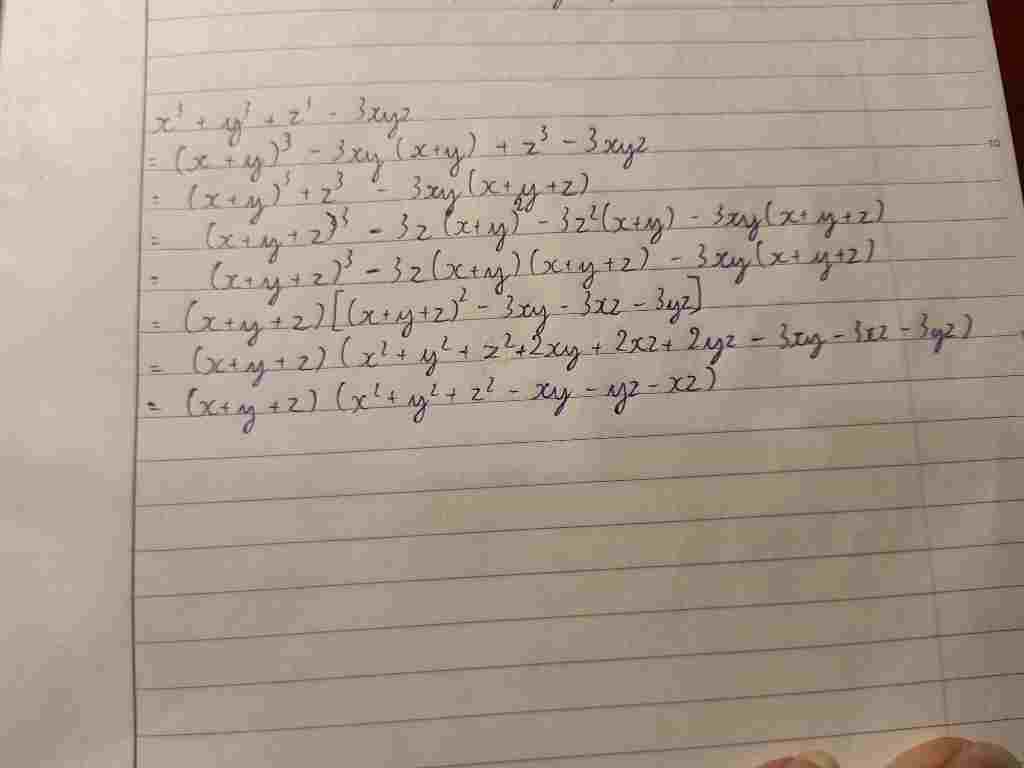 x³ + y³ + z³ - 3xyz
= (x+y)³ - 3xy(x+y) + z³ - 3xyz
= (x+y)³ + z³ - 3xy(x+y+z)
= (x+y+z)³ - 3z(x+y)² - 3z²(x+y) - 3xy(x+y+z)
= (x+y+z)³ - 3z(x+y)(x+y+z) - 3xy(x+y+z)
= (x+y+z)[(x+y+z)² - 3xy - 3xz - 3yz]
= (x+y+z)(x²+y²+z²+2xy+2xz+2yz-3xy-3xz-3yz)
= (x+y+z)(x²+y²+z²-xy-yz-xz)